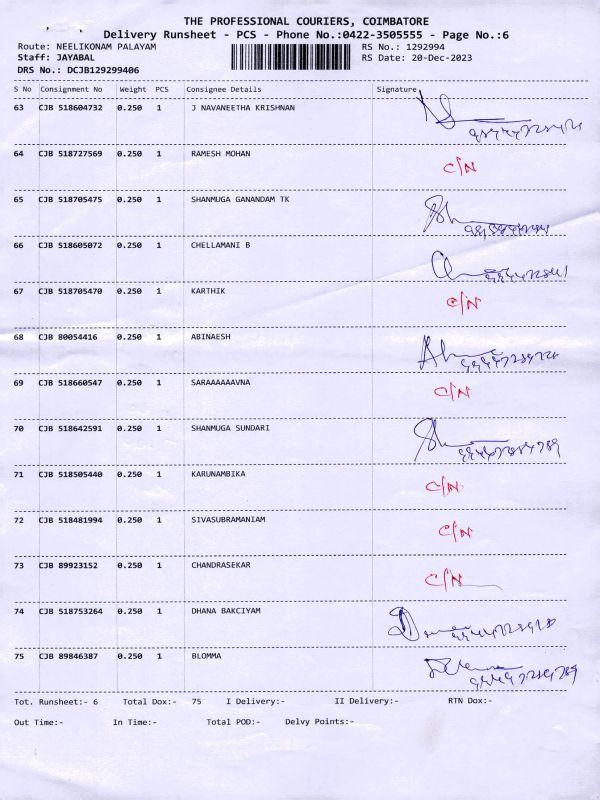 THE PROFESSIONAL COURIERS, COIMBATORE
Delivery Runsheet - PCS - Phone No.:0422-3505555 - Page No.:6
Route: NEELIKONAM PALAYAM RS No.: 1292994
Staff: JAYABAL RS Date: 20-Dec-2023
DRS No.: DCJB129299406
S No Consignment No Weight PCS Consignee Details Signature
63 CJB 518604732 0.250 1 J NAVANEETHA KRISHNAN
64 CJB 518727569 0.250 1 RAMESH MOHAN C/N
65 CJB 518705475 0.250 1 SHANMUGA GANANDAM TK
66 CJB 518605072 0.250 1 CHELLAMANI B
67 CJB 518705470 0.250 1 KARTHIK C/N
68 CJB 80054416 0.250 1 ABINAESH
69 CJB 518660547 0.250 1 SARAAAAAAVNA C/N
70 CJB 518642591 0.250 1 SHANMUGA SUNDARI
71 CJB 518505440 0.250 1 KARUNAMBIKA C/N
72 CJB 518481994 0.250 1 SIVASUBRAMANIAM C/N
73 CJB 89923152 0.250 1 CHANDRASEKAR C/N
74 CJB 518753264 0.250 1 DHANA BAKCIYAM
75 CJB 89846387 0.250 1 BLOMMA
Tot. Runsheet:- 6 Total Dox:- 75 I Delivery:- II Delivery:- RTN Dox:-
Out Time:- In Time:- Total POD:- Delvy Points:-